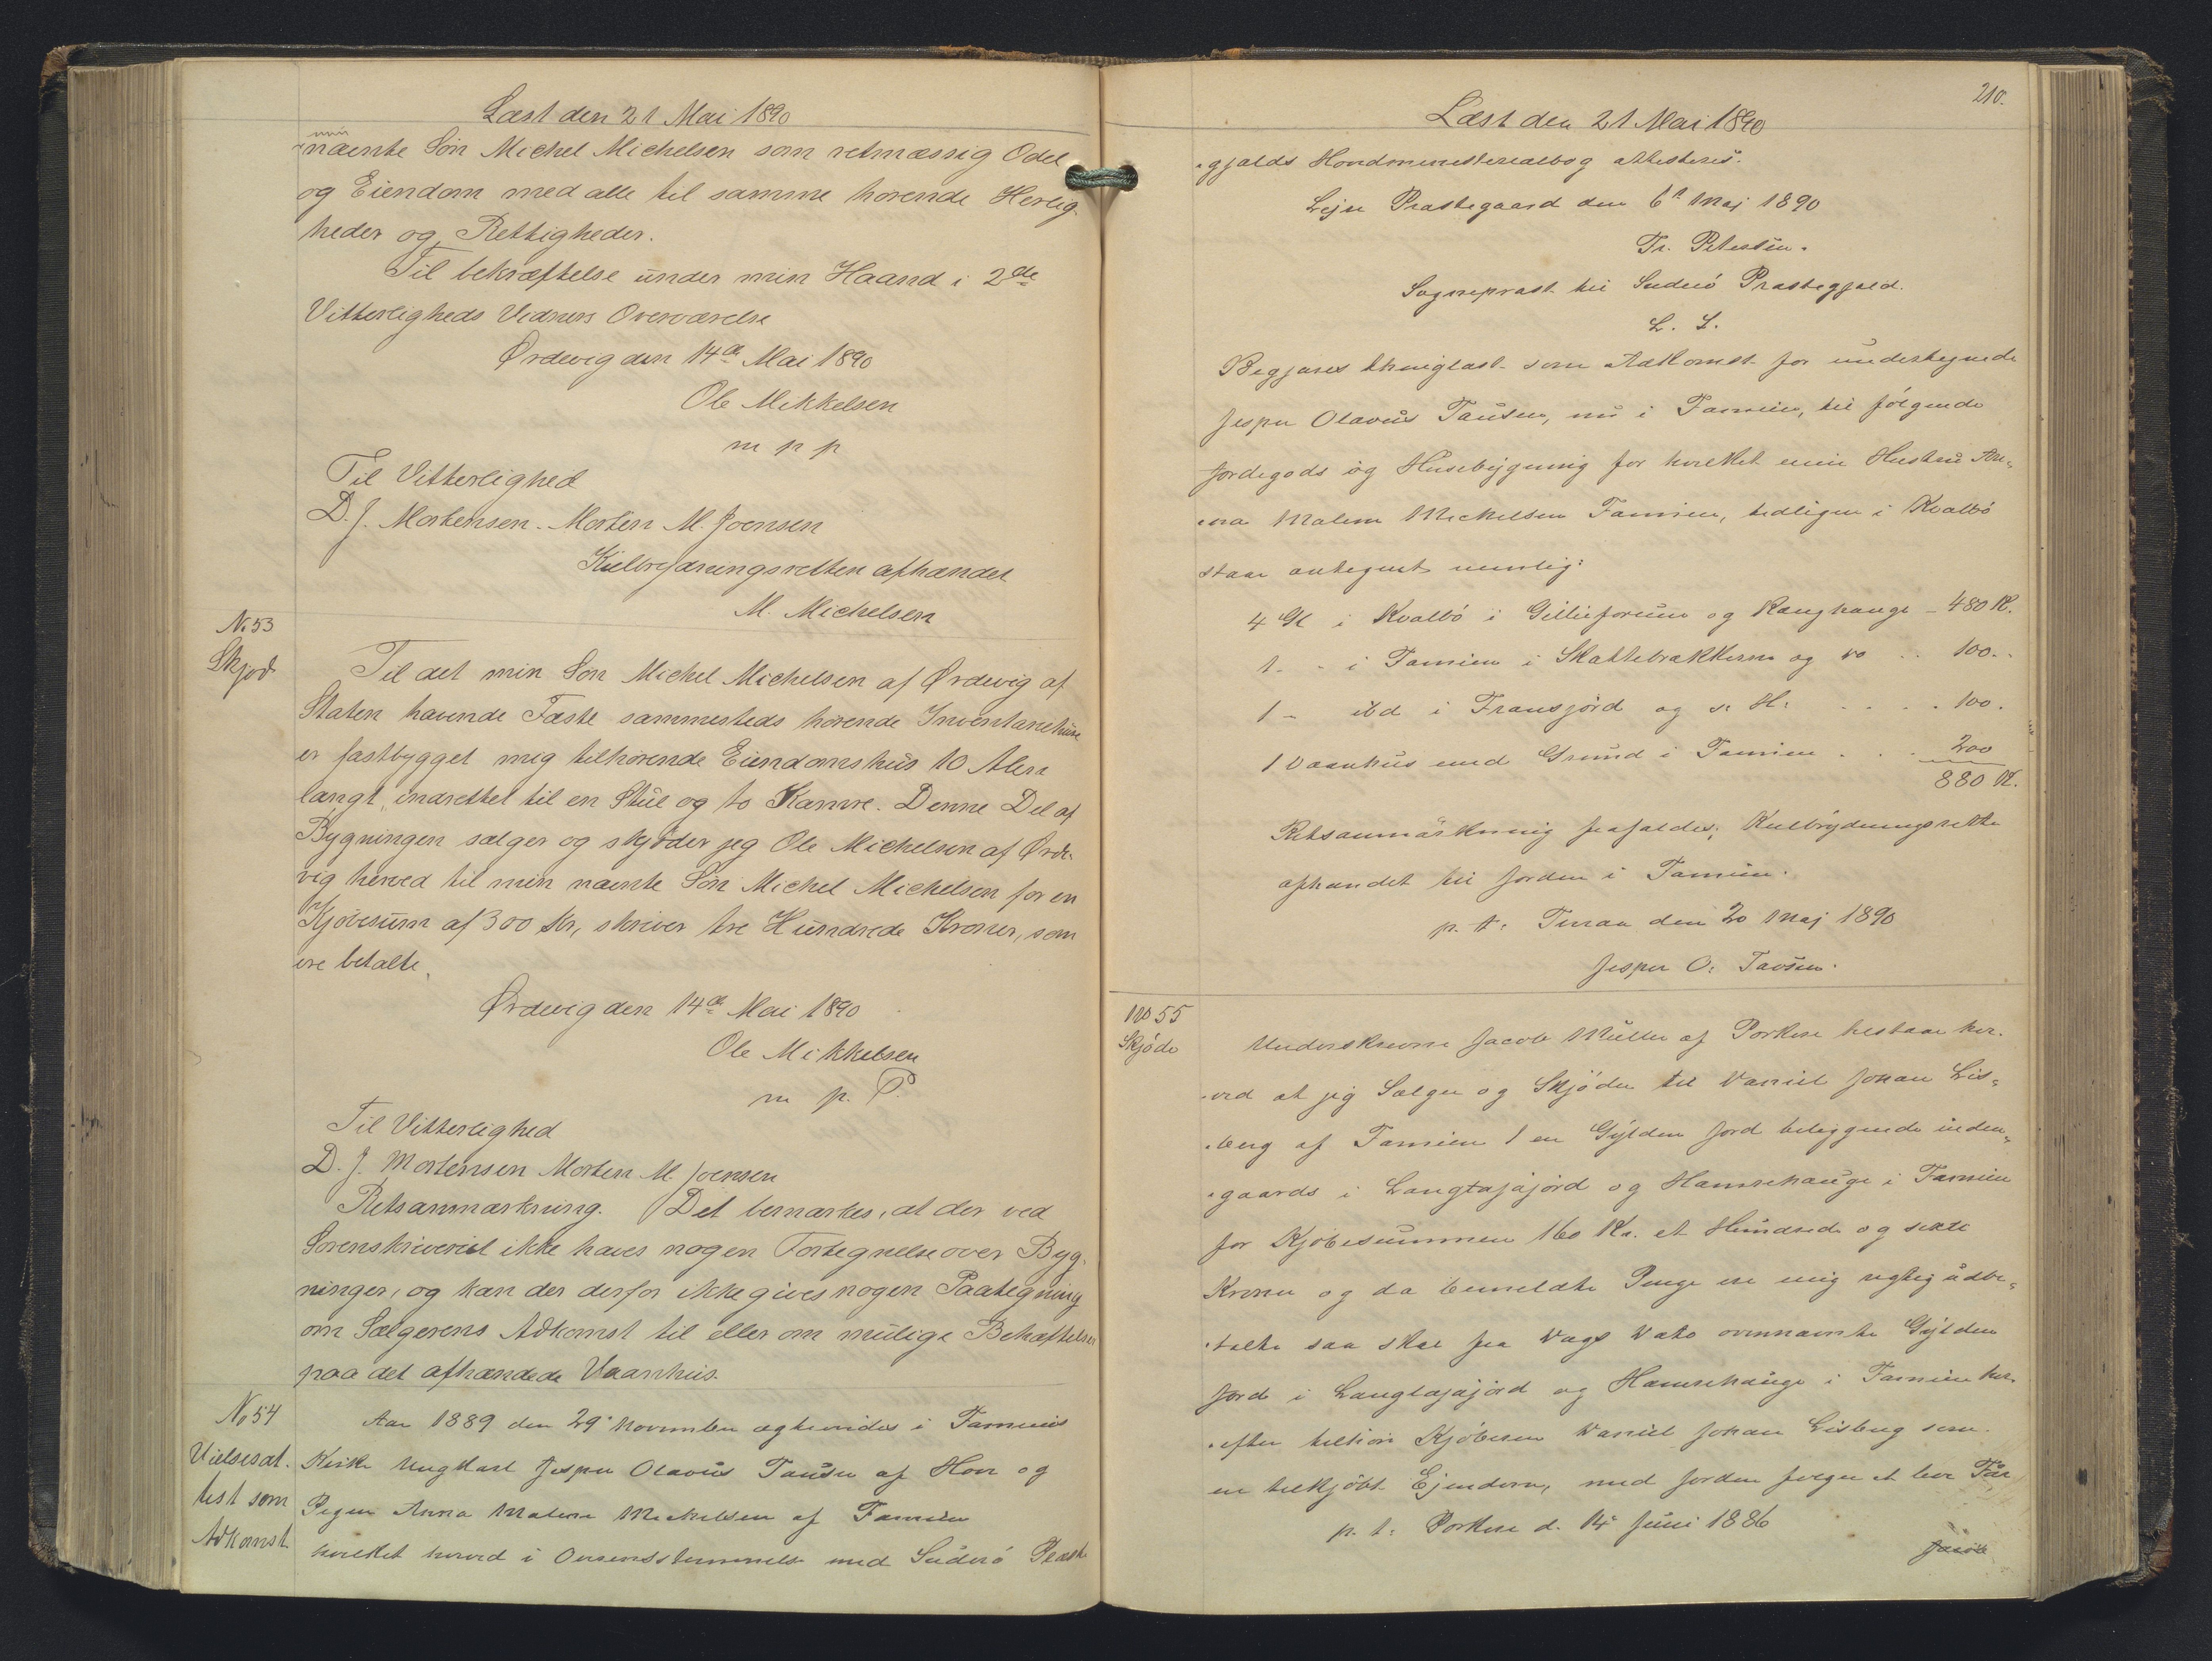 Læst den 21 Mai 1890
min
nævnte Søn Michel Michelsen som retmæssig Odel
og Eiendom med alle til samme hørende Herlig-
heder og Rettigheder.
Til bekræftelse under min Haand i 2de
Vitterligheds Vidners Overværelse
Ørdevig den 14de Mai 1890
Ole Mikkelsen
m p p
Til Vitterlighed
D. J. Mortensen. Morten M. Joensen
Kulbrydningsretten afhændet
M. Michelsen
No 53
Skjød
Til det min Søn Michel Michelsen af Ørdevig af
Staten havende Fæste sammesteds hørende Inventariehuus
er fastbygget mig tilhørende Eiendomshus 10 Alen
langt, indrettet til en Stue og to Kamre. Denne Del af
Bygningen sælger og skjøder jeg Ole Michelsen af Ørde-
vig herved til min nævnte Søn Michel Michelsen for en
Kjøbesum af 300 Kr, skriver tre Hundrede Kroner, som
ere betalte.
Ørdevig den 14de Mai 1890
Ole Mikkelsen
m p. P.
Til Vitterlighed
D. J. Mortensen Morten M. Joensen
Retsanmærkning. Det bemærkes, at der ved
Sorenskriveriet ikke haves nogen Fortegnelse over Byg-
ninger, og kan der derfor ikke gives nogen Paategning
om Sælgerens Adkomst til eller om mulige Behæftelser
paa det afhændede Vaanhus.
No 54
Vielsesat-
test som
Adkomst
Aar 1889 den 29 November ægteviedes i Famiens
Kirke Ungkarl Jesper Olavus Tausen af Hov og
Pigen Anna Malene Mickelsen af Famien
hvilket herved i Overensstemmelse med Suderø Præste
210.
Læst den 21 Mai 1890
gjælds Hovedministerialbog attesteres.
Lejre Præstegaard den 6te Maj 1890
Fr. Petersen.
Sognepræst til Suderø Præstegjæld.
L. S.
Begjæres thinglæst som Adkomst for undertegnede
Jesper Olavus Tausen, nu i Famien, til følgende
Jordegods og Husebygning for hvilket min Hustru An-
na Malene Mickelsen Famien, tidligere i Kvalbø
staar antegnet nemlig:
4 Gl i Kvalbø i og - 480 K.
1 - - i Famien i og .. 100..
1 - ibd i og s. H. .... 100.
1 Vaanhus med Grund i Famien ... 200
880 K.
Retsanmærkning frafaldes; Kulbrydningsrette
afhændet til Jorden i Famien.
p. t. Tveraa den 20 Maj 1890
Jesper O. Tausen.
No 55
Skjøde
Underskrevne Jacob Müller af Porkere tilstaar her-
ved at jeg Sælger og Skjøder til Daniel Johan Lis-
berg af Famien 1 en Gylden Jord beliggende inden-
gaards i Langtajajord og Hamrehauge i Famien
for Kjøbesummen 160 Kr. et Hundrede og sexti
Kroner og da bemeldte Penge ere mig rigtig udbe-
talte saa skal fra Dags Dato ovennævnte Gylden
Jord i Langtajajord og Hamrehauge i Famien her-
efter tilhøre Kjøberen Daniel Johan Lisberg som
en tilkjøbt Ejendom, med Jorden følger et leve Får
p. t. Porkere d. 14 Juni 1886
Jacob